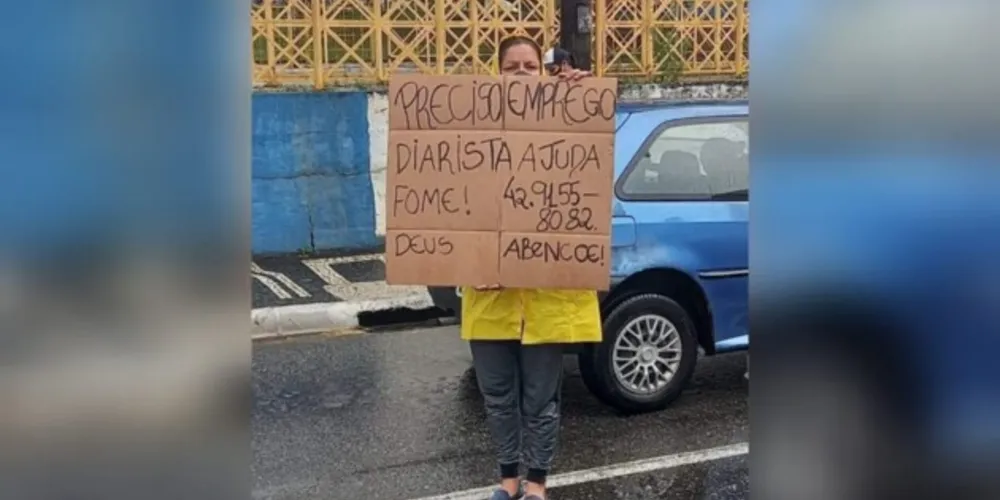 PRECISO EMPREGO
DIARISTA AJUDA
FOME! 42.9155-
8082.
DEUS ABENÇOE!